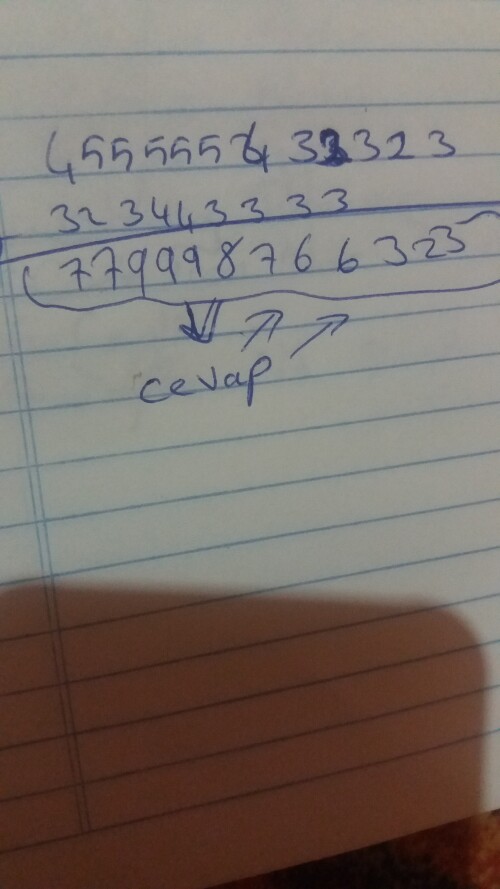 455555433323
323443333
779998766323
cevap